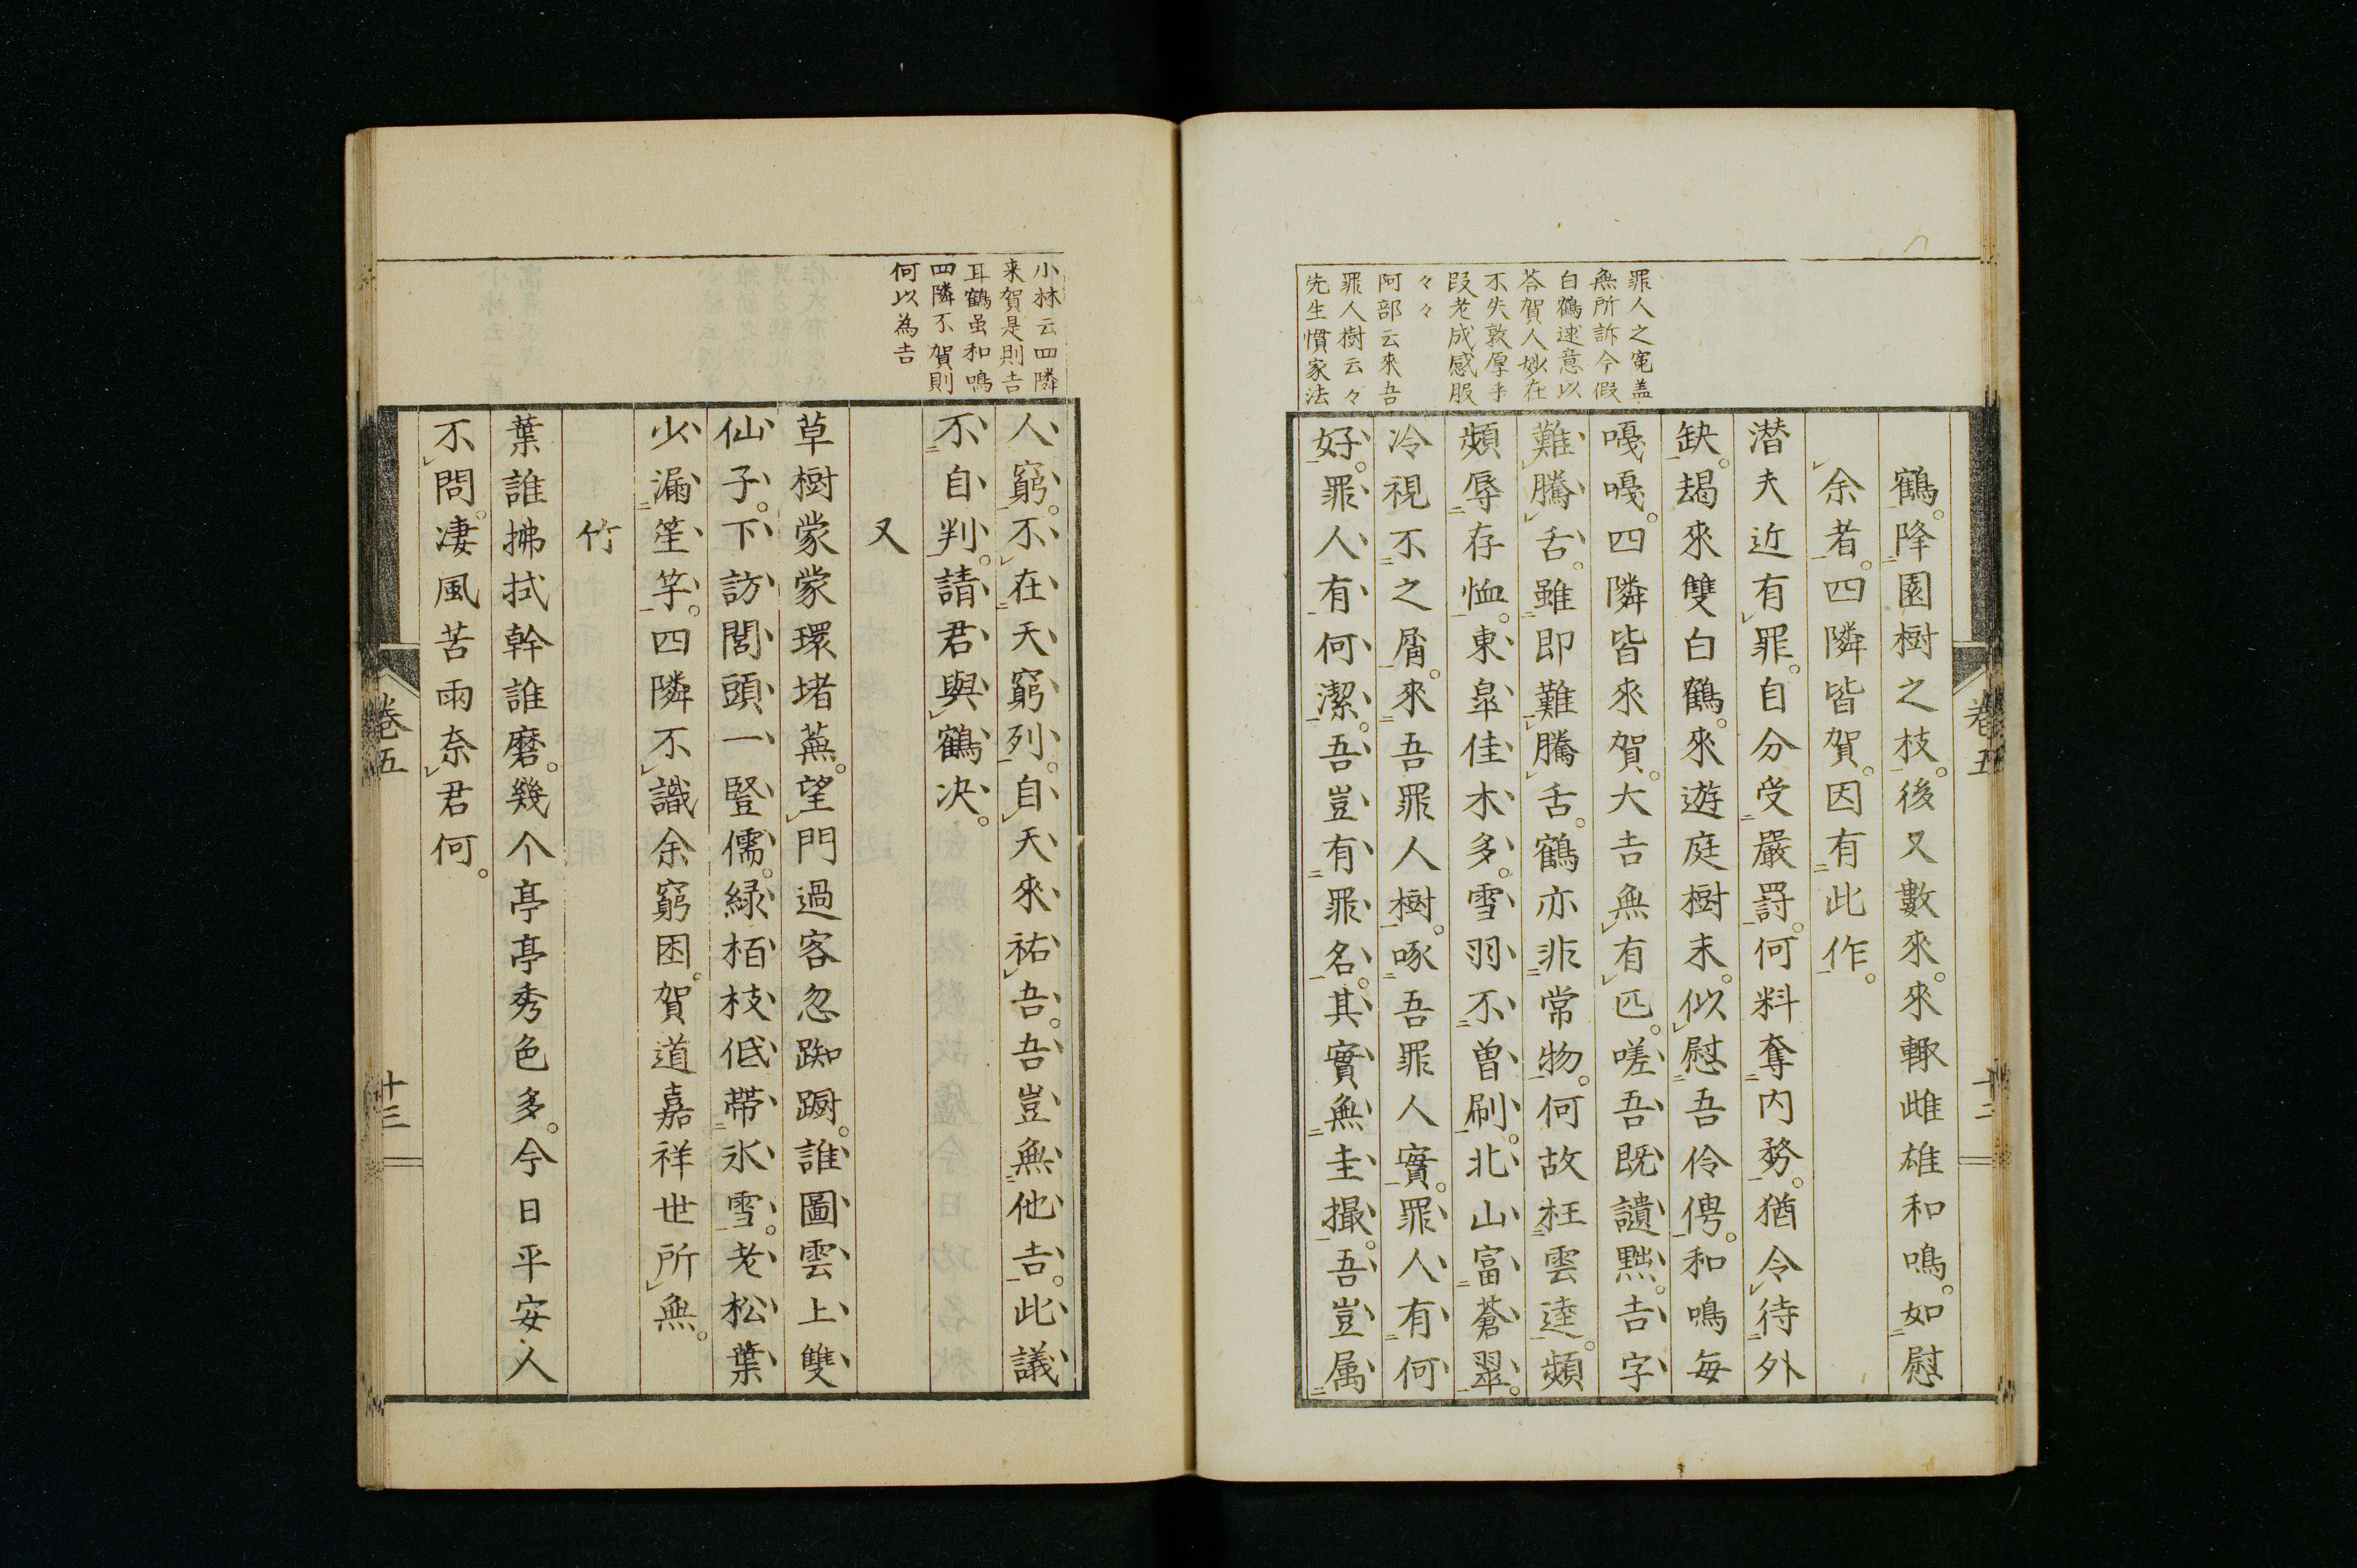 罪人之寃盖
無所訴今假
白鶴逑意以
荅賀人妙在
不失敦厚手
段老成感服
々々
阿部云來吾
罪人樹云々
先生慣家法
鶴降園樹之枝後又數來來輙雌雄和鳴如慰
余者四隣皆賀因有此作
潜夫近有罪自分受嚴罸何料奪内務猶令待外
缺朅來雙白鶴來遊庭樹末似慰吾伶俜和鳴每
嘎嘎四隣皆來賀大吉無有匹嗟吾既譴黜吉字
難騰舌雖即難騰舌鶴亦非常物何故枉雲逵頻
頻辱存恤東皐佳木多雪羽不曽刷北山富蒼翠
冷視不之屑來吾罪人樹啄吾罪人實罪人有何
好罪人有何潔吾豈有罪名其實無圭撮吾豈属
卷五
十二
小林云四隣
来賀是則吉
耳鶴虽和鳴
四隣不賀則
何以為吉
人窮不在天窮列自天來祐吾吾豈無他吉此議
不自判請君與鶴决
又
草樹蒙蒙環堵蕪望門過客忽踟蹰誰圖雲上雙
仙子下訪閭頭一豎儒緑栢枝低帶氷雪老松葉
少漏笙竽四隣不識余窮困賀道嘉祥世所無
竹
葉誰拂拭幹誰磨幾个亭亭秀色多今日平安人
不問凄風苦雨奈君何
卷五
十三